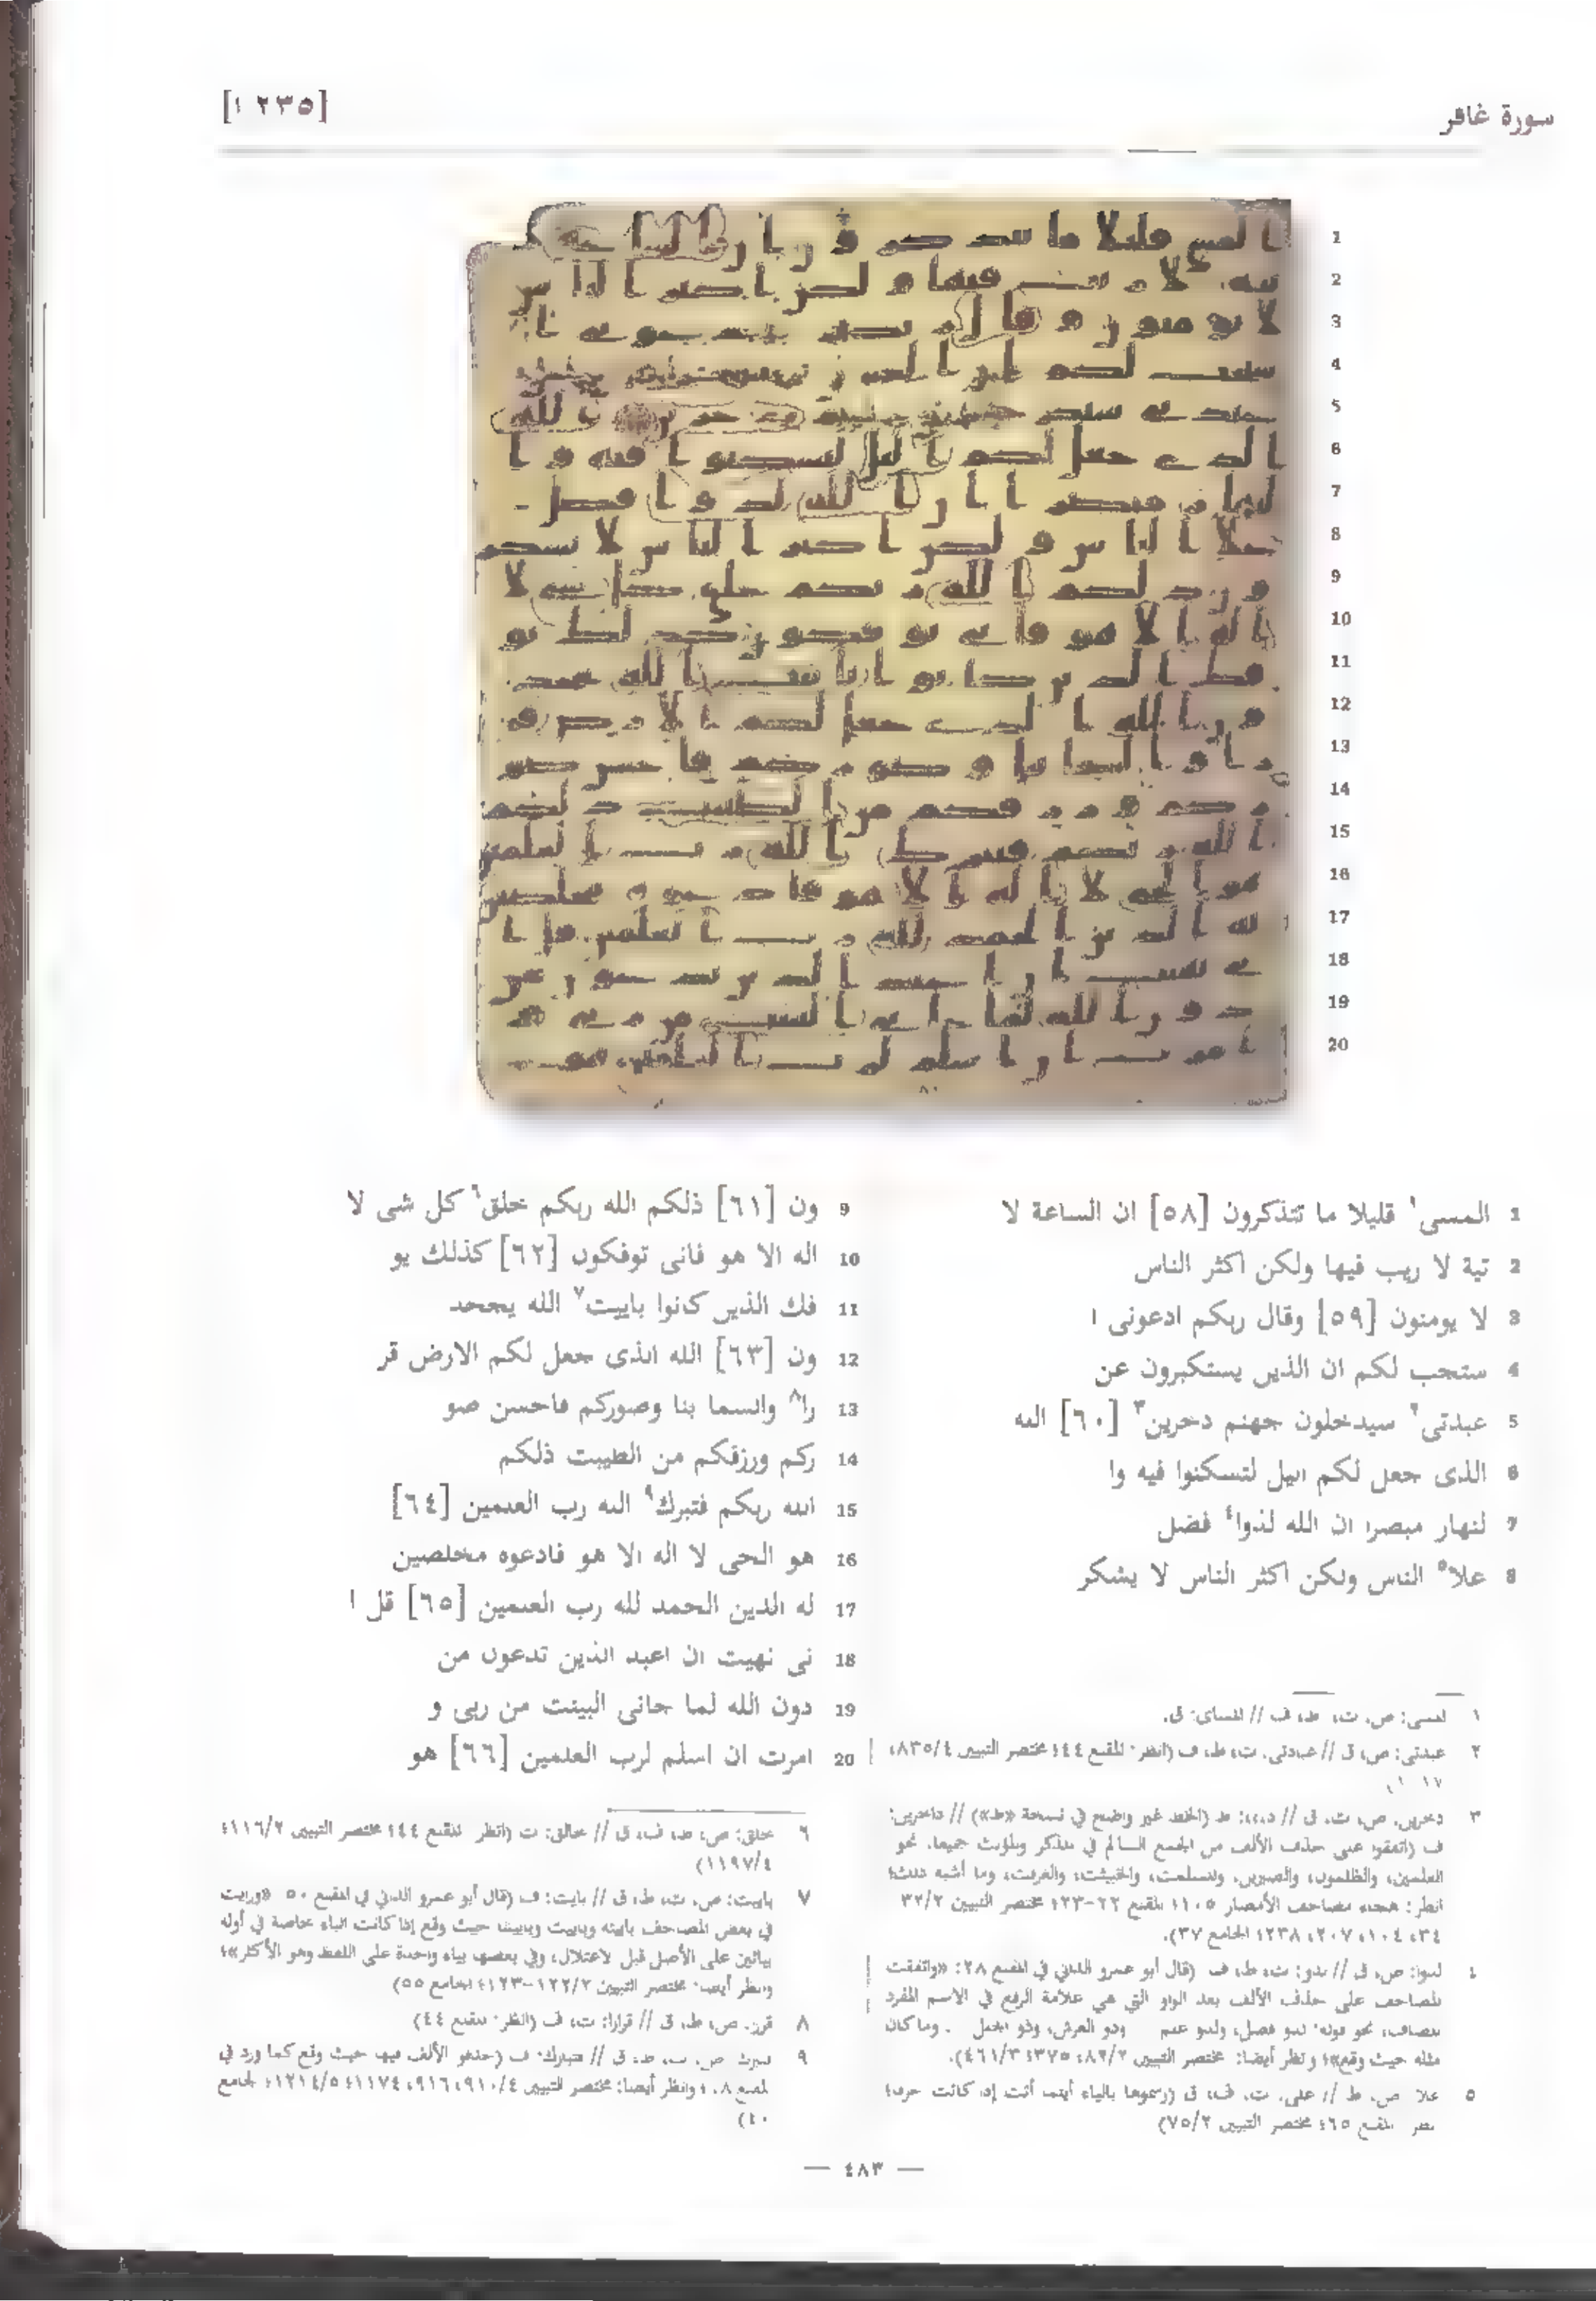 سورة غافر
[١٢٣٥]
1
2
3
4
5
6
7
8
9
10
11
12
13
14
15
16
17
18
19
20
1 المسى١ قليلا ما تتذكرون [٥٨] ان الساعة لا
2 تية لا ريب فيها ولكن اكثر الناس
3 لا يومنون [٥٩] وقال ربكم ادعونى ا
4 ستجب لكم ان الذين يستكبرون عن
5 عبدتى٢ سيدخلون جهنم دخرين٣ [٦٠] الله
6 الذى جعل لكم اليل لتسكنوا فيه وا
7 لنهار مبصرا ان الله لذوا٤ فضل
8 علا٥ الناس ولكن اكثر الناس لا يشكر
9 ون [٦١] ذلكم الله ربكم خلق٦ كل شى لا
10 اله الا هو فانى توفكون [٦٢] كذلك يو
11 فك الذين كانوا باييت٧ الله يجحد
12 ون [٦٣] الله الذى جعل لكم الارض قر
13 را٨ والسما بنا وصوركم فاحسن صو
14 ركم ورزقكم من الطيبت ذلكم
15 الله ربكم فتبرك٩ الله رب العلمين [٦٤]
16 هو الحى لا اله الا هو فادعوه مخلصين
17 له الدين الحمد لله رب العلمين [٦٥] قل ا
18 نى نهيت ان اعبد الذين تدعون من
19 دون الله لما جانى البينت من ربى و
20 امرت ان اسلم لرب العلمين [٦٦] هو
١ المسى: ص، ت، ط، ف // المساى: ق.
٢ عبدتى: ص، ق // عبادتى: ت، ط، ف (انظر: المقنع ٤٤؛ مختصر التبيين ٨٣٥/٤،
٣ دخرين: ص، ت، ق // ط (الخط غير واضح في نسخة «ط») // داخرين:
ف (اتفقوا على حذف الألف من الجمع السالم في المذكر والمؤنث جميعا. نحو
العلمين، والظلمون، والصبرين، والمسلمت، والخبيثت، والغرفت، وما أشبه ذلك؛
انظر: هجاء مصاحف الأمصار ١٠٥؛ المقنع ٢٢-٢٣؛ مختصر التبيين ٣٢/٢
٣٤، ١٠٤، ٢٠٧، ٢٣٨؛ الجامع ٣٧).
٤ لذوا: ص، ق // لذو: ت، ط، ف (قال أبو عمرو الداني في المقنع ٢٨: «واتفقت
المصاحف على حذف الألف بعد الواو التي هي علامة الرفع في الاسم المفرد
المضاف، نحو قوله: لذو فضل، ولذو علم وذو العرش، وذو الجلل . وما كان
مثله حيث وقع»؛ وانظر أيضا: مختصر التبيين ٨٢/٢؛ ٣٧٥؛ ٤٦١/٣).
٥ علا: ص، ط // على: ت، ف، ق (رسموها بالياء أينما أتت إذا كانت حرفا؛
انظر المقنع ٦٥؛ مختصر التبيين ٧٥/٢)
٦ خلق: ص، ط، ف، ق // خالق: ت (انظر المقنع ٤٤؛ مختصر التبيين ١١٦/٢؛
١١٩٧/٤)
٧ باييت: ص، ت، ط، ق // بايت: ف (قال أبو عمرو الداني في المقنع ٥٠ «ورايت
في بعض المصاحف باييته وباييت وباييتنا حيث وقع إذا كانت الباء خاصة في أوله
بيائين على الأصل قبل الاعتلال، وفي بعضها بياء واحدة على اللفظ وهو الأكثر»؛
وانظر أيضا: مختصر التبيين ١٢٢/٢-١٢٣؛ الجامع ٥٥)
٨ قررا: ص، ط، ق // قرارا: ت، ف (انظر: المقنع ٤٤)
٩ فتبرك: ص، ت، ط، ق // فتبارك: ف (حذفو الألف فيها حيث وقع كما ورد في
المقنع ١٨؛ وانظر أيضا: مختصر التبيين ٩١٠/٤، ٩١٦، ١١٧٤؛ ١٢١٤/٥؛ الجامع
٤٠)
— ٤٨٣ —